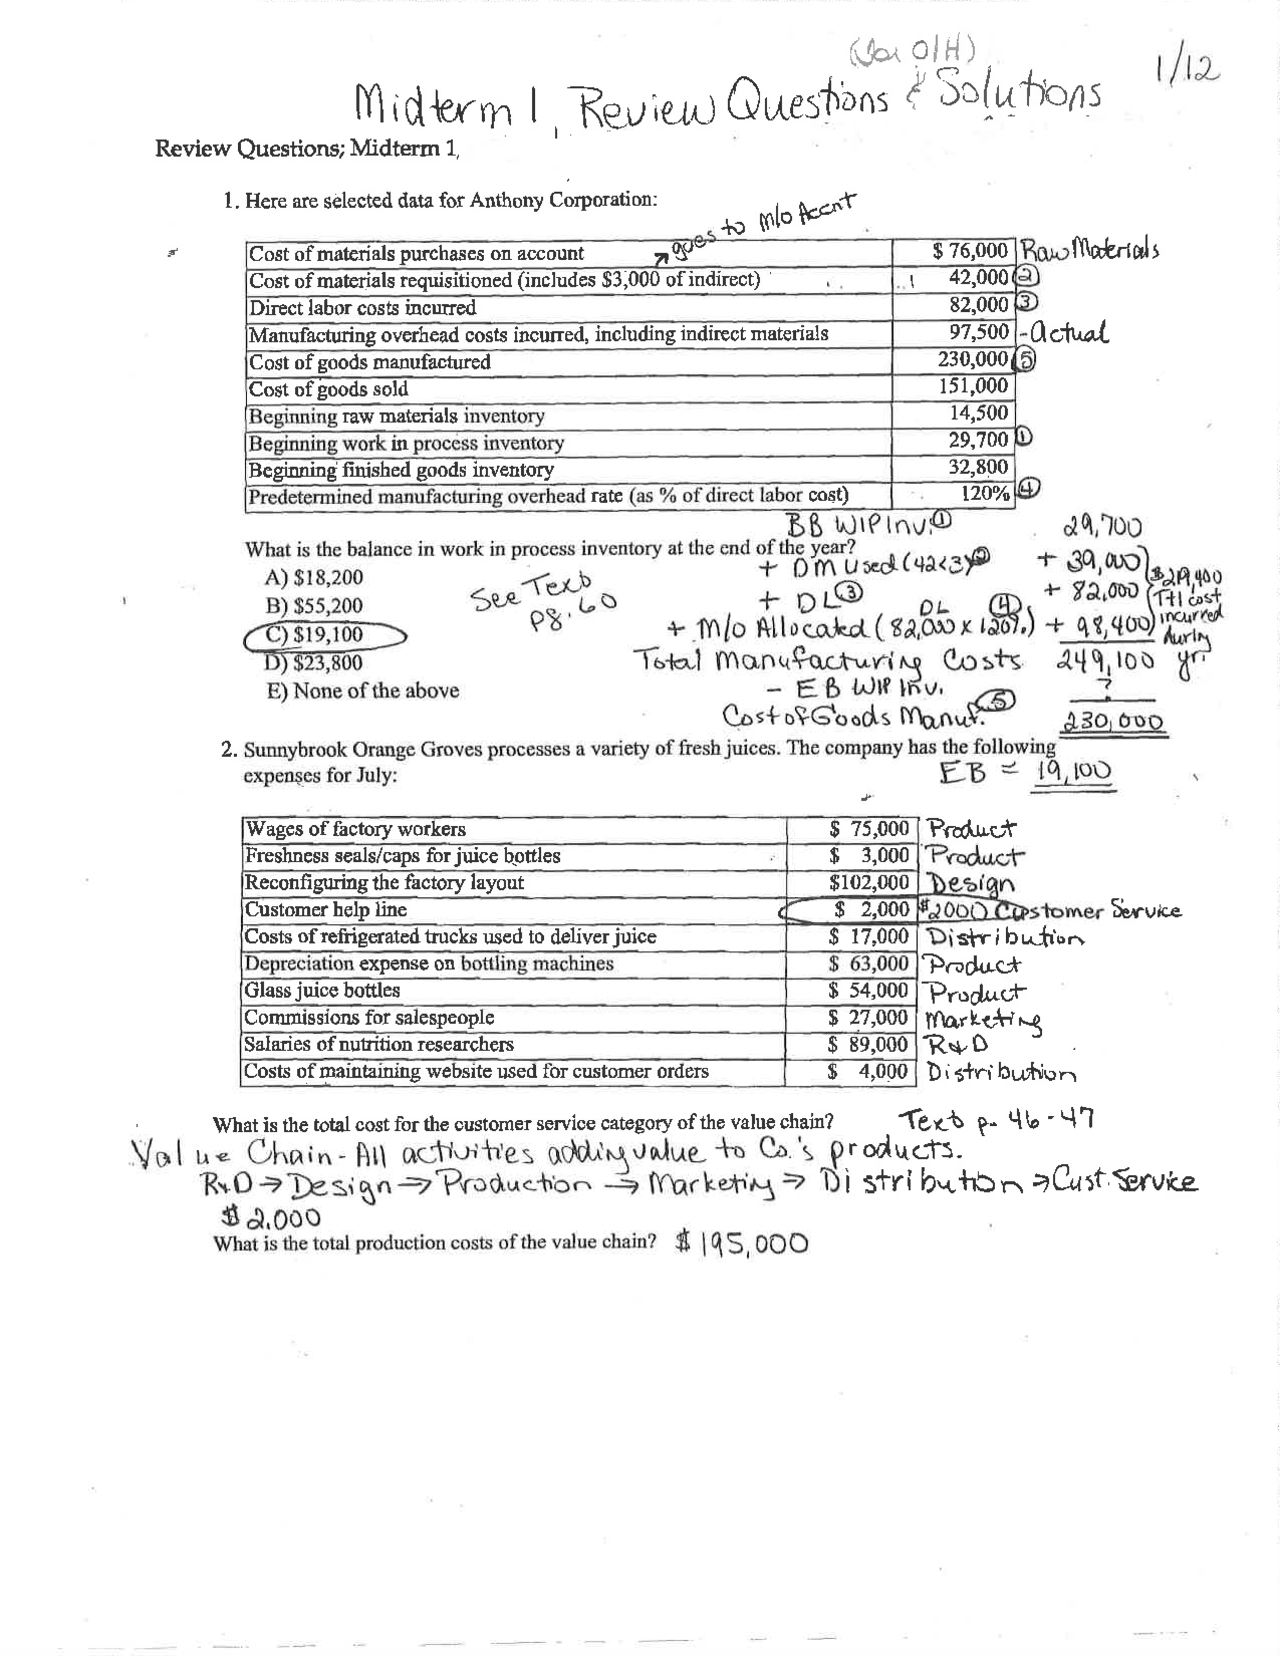 (Var O/H)
1/12
Midterm 1, Review Questions & Solutions
Review Questions; Midterm 1,
1. Here are selected data for Anthony Corporation:
goes to M/O Accnt
Cost of materials purchases on account $ 76,000 Raw Materials
Cost of materials requisitioned (includes $3,000 of indirect) 42,000 ②
Direct labor costs incurred 82,000 ③
Manufacturing overhead costs incurred, including indirect materials 97,500 - Actual
Cost of goods manufactured 230,000 ⑤
Cost of goods sold 151,000
Beginning raw materials inventory 14,500
Beginning work in process inventory 29,700 ①
Beginning finished goods inventory 32,800
Predetermined manufacturing overhead rate (as % of direct labor cost) 120% ④
BB WIP Inv. ① 29,700
What is the balance in work in process inventory at the end of the year?
+ DM Used (42<3>) ② + 39,000
A) $18,200
B) $55,200
C) $19,100
D) $23,800
E) None of the above
See Text
pg. 60
+ DL ③ + 82,000
+ M/O Allocated (82,000 x 120%) + 98,400
DL ④
$219,400
Ttl cost
incurred
during
yr.
Total Manufacturing Costs 249,100
- EB WIP Inv. ?
Cost of Goods Manuf. ⑤ 230,000
2. Sunnybrook Orange Groves processes a variety of fresh juices. The company has the following
expenses for July:
EB = 19,100
Wages of factory workers $ 75,000 Product
Freshness seals/caps for juice bottles $ 3,000 Product
Reconfiguring the factory layout $102,000 Design
Customer help line $ 2,000 $2000 Customer Service
Costs of refrigerated trucks used to deliver juice $ 17,000 Distribution
Depreciation expense on bottling machines $ 63,000 Product
Glass juice bottles $ 54,000 Product
Commissions for salespeople $ 27,000 Marketing
Salaries of nutrition researchers $ 89,000 R&D
Costs of maintaining website used for customer orders $ 4,000 Distribution
What is the total cost for the customer service category of the value chain? Text p. 46-47
Value Chain - All activities adding value to Co.'s products.
R&D → Design → Production → Marketing → Distribution → Cust. Service
$2,000
What is the total production costs of the value chain? $195,000